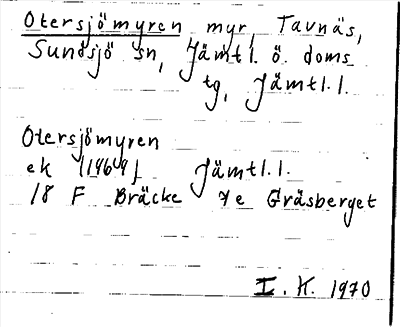 Otersjömyren myr, Tavnäs,
Sundsjö sn, Jämtl. ö. doms
tg, Jämtl. l.
Otersjömyren
ek (1969) Jämtl. l.
18 F Bräcke 7e Gräsberget
I. K. 1970